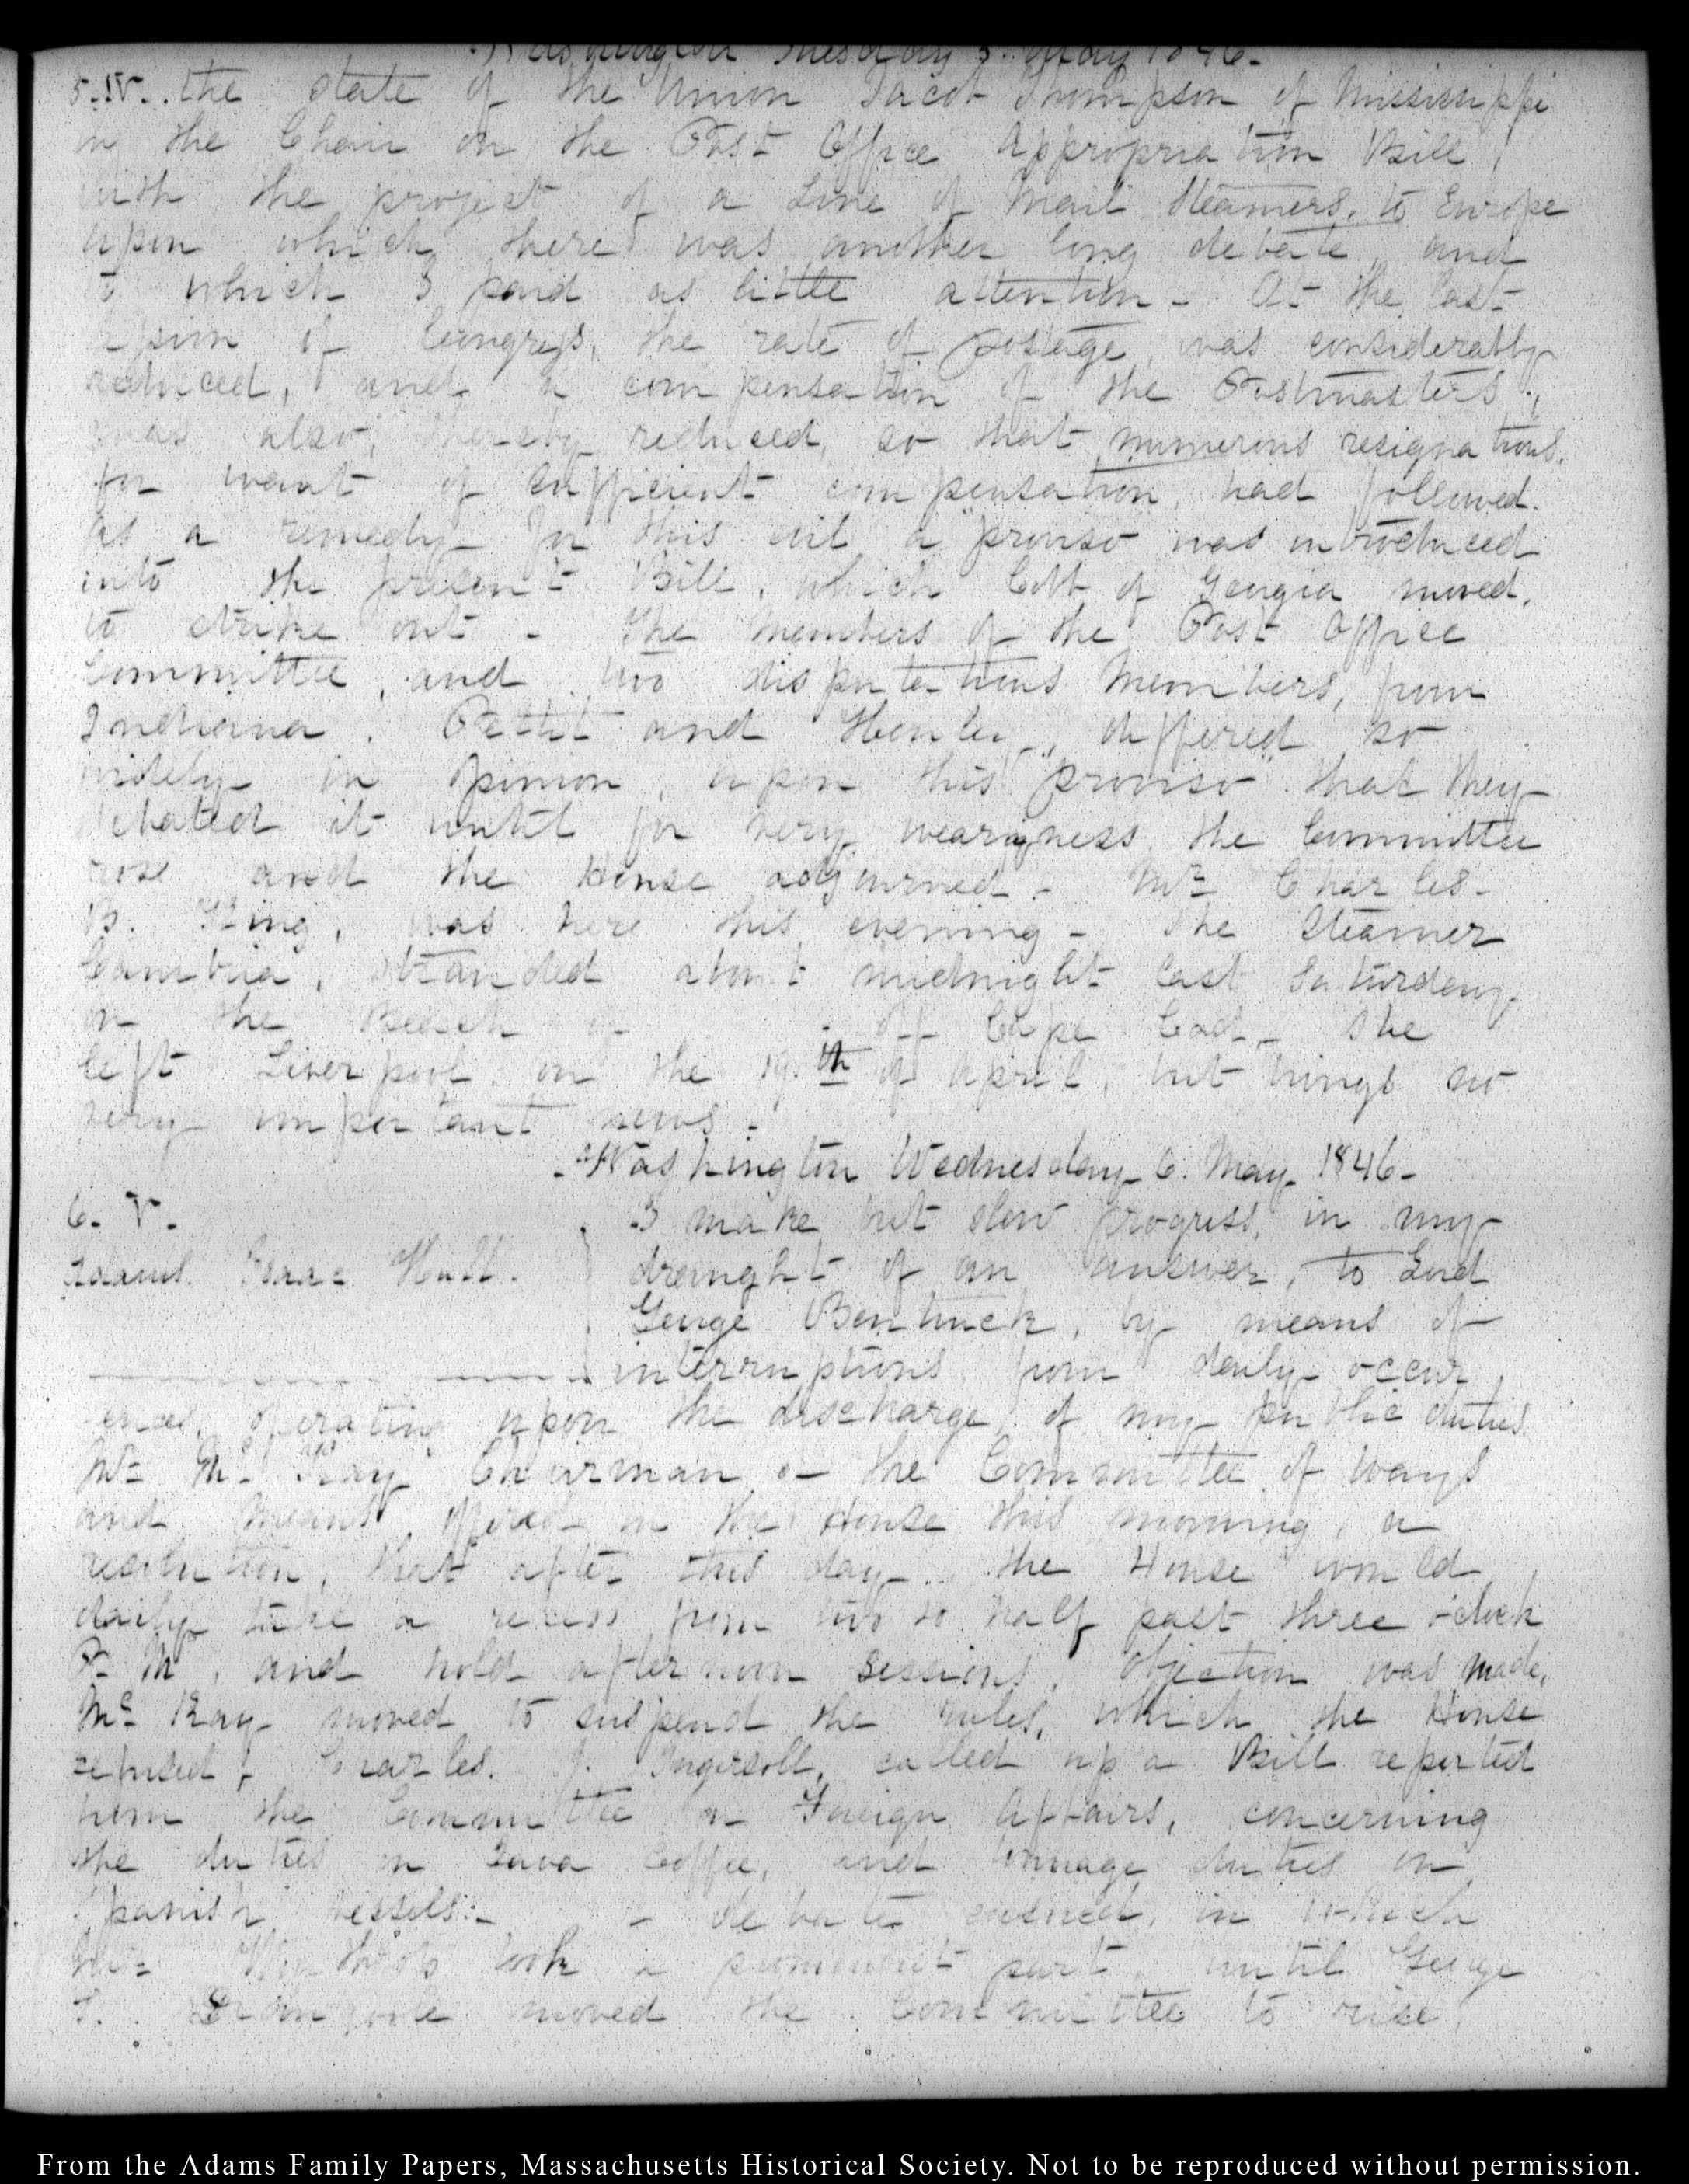 Washington Tuesday 5. May 1846-
5. IV. the state of the Union Jacob Thompson of Mississippi
in the Chair on the Post Office Appropriation Bill,
with the project of a Line of Mail Steamers, to Europe
upon which there was another long debate, and
to which I paid as little attention - At the last
Session of Congress, the rate of postage, was considerably
reduced, and compensation of the Postmasters,
was also, thereby reduced, so that numerous resignations,
for want of sufficient compensation, had followed.
As a remedy for this evil a "proviso" was introduced
into the present Bill, which Cobb of Georgia moved,
to strike out - The members of the Post Office
Committee, and two disputatious Members, from
Indiana. Pettit and Henley, differed so
widely in opinion, upon this "proviso" that they
debated it until for very weariness, the Committee
rose and the House adjourned - Mr Charles-
B. King, was here this evening - The Steamer
Cambria, stranded about midnight last Saturday,
on the Beach off Cape Cod - She
left Liverpool on the 19.th of April, but brings no
very important news -
- Washington Wednesday 6. May 1846-
6. V. I make but slow progress, in my
Adams. Isaac Hull. draught of an answer, to Lord
George Bentinck, by means of
interruptions from daily occur
ences, operating upon the discharge, of my public duties
Mr McKay Chairman of the Committee of Ways
and Means, offered in the House this morning, a
resolution, that after this day - the House would
daily take a recess from two to half past three o'clock
P. M, and hold afternoon sessions, objection was made,
Mc Kay moved to suspend the rules, which the House
refused, Charles. J. Ingersoll, called up a Bill reported
from the Committee on Foreign Affairs, concerning
the duties on Java Coffee, and tonnage duties on
Spanish vessels - debate ensued, in which
took a prominent part, until George
C. Dromgoole moved the Committee to rise,
From the Adams Family Papers, Massachusetts Historical Society. Not to be reproduced without permission.